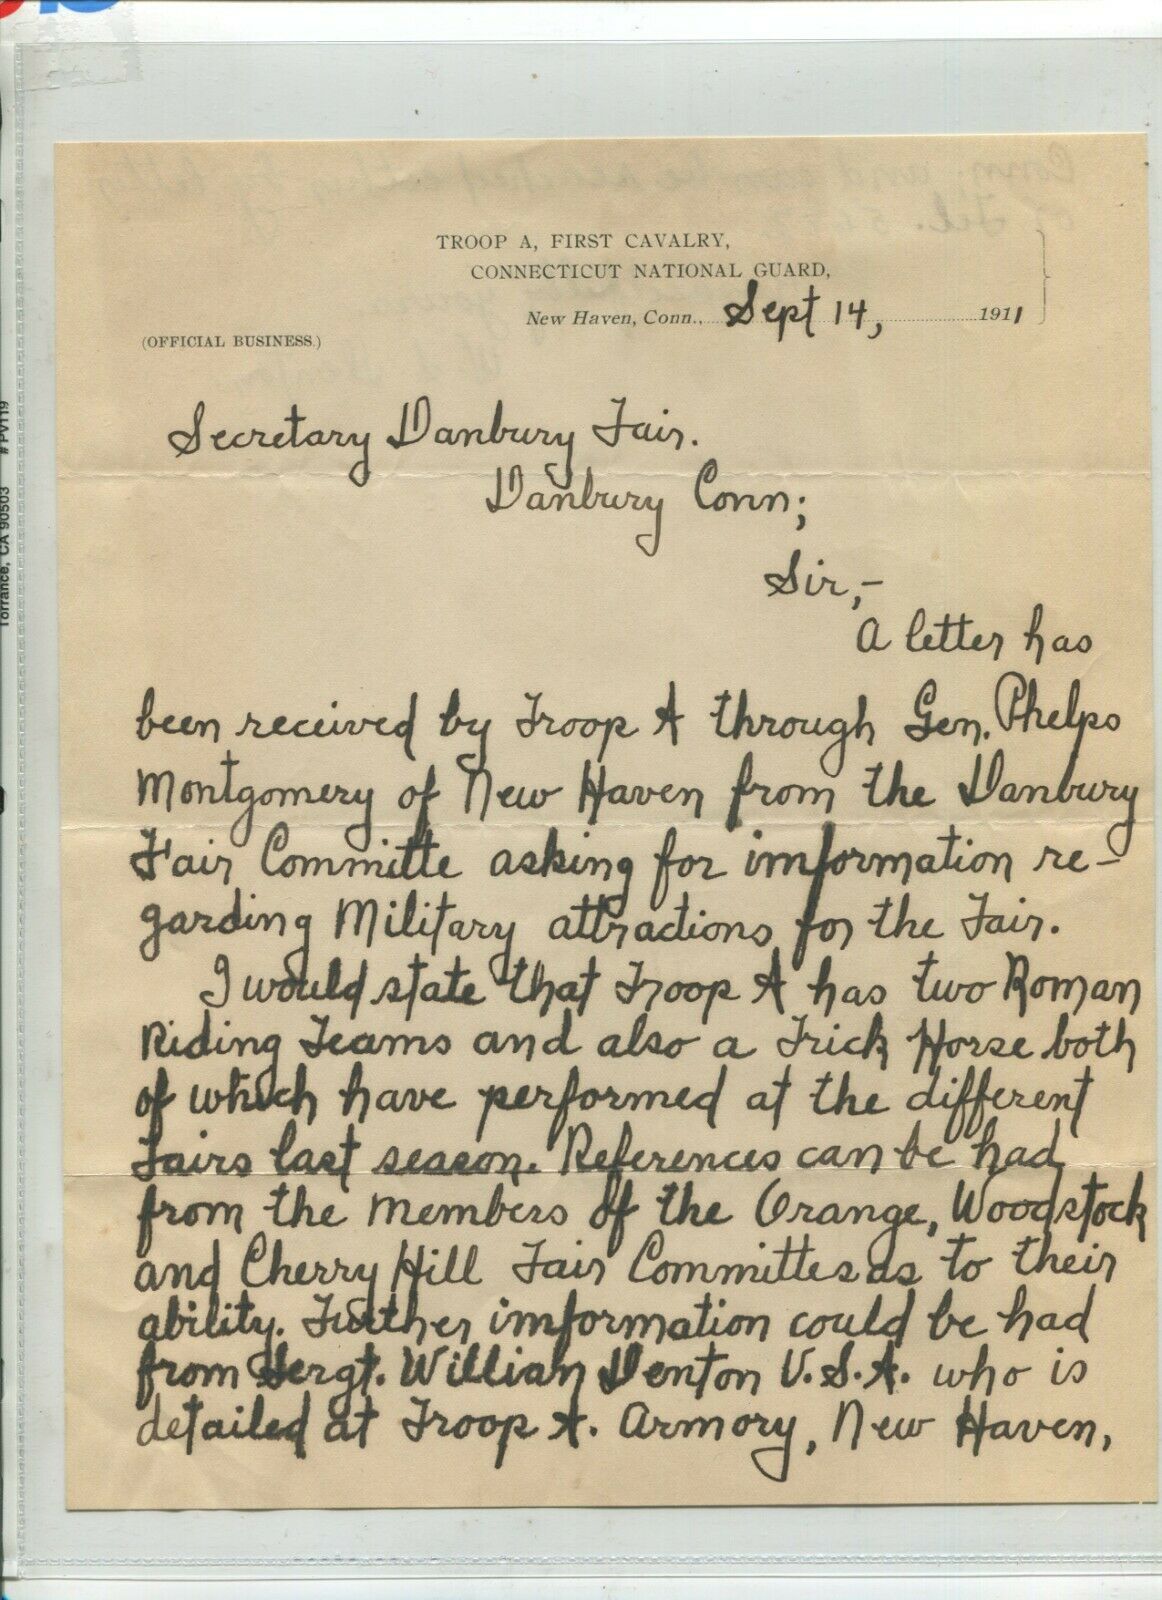 TROOP A, FIRST CAVALRY,
CONNECTICUT NATIONAL GUARD,
New Haven, Conn., Sept 14, 1911
(OFFICIAL BUSINESS.)
Secretary Danbury Fair.
Danbury Conn;
Sir,-
A letter has
been received by Troop A through Gen. Phelps
Montgomery of New Haven from the Danbury
Fair Committe asking for imformation re-
garding Military attractions for the Fair.
I would state that Troop A has two Roman
Riding Teams and also a Trick Horse both
of which have performed at the different
Fairs last season. References can be had
from the members of the Orange, Woodstock
and Cherry Hill Fair Committes as to their
ability. Further imformation could be had
from Sergt. William Denton U.S.A. who is
detailed at Troop A. Armory, New Haven,
Torrance, CA 90503 # PV119